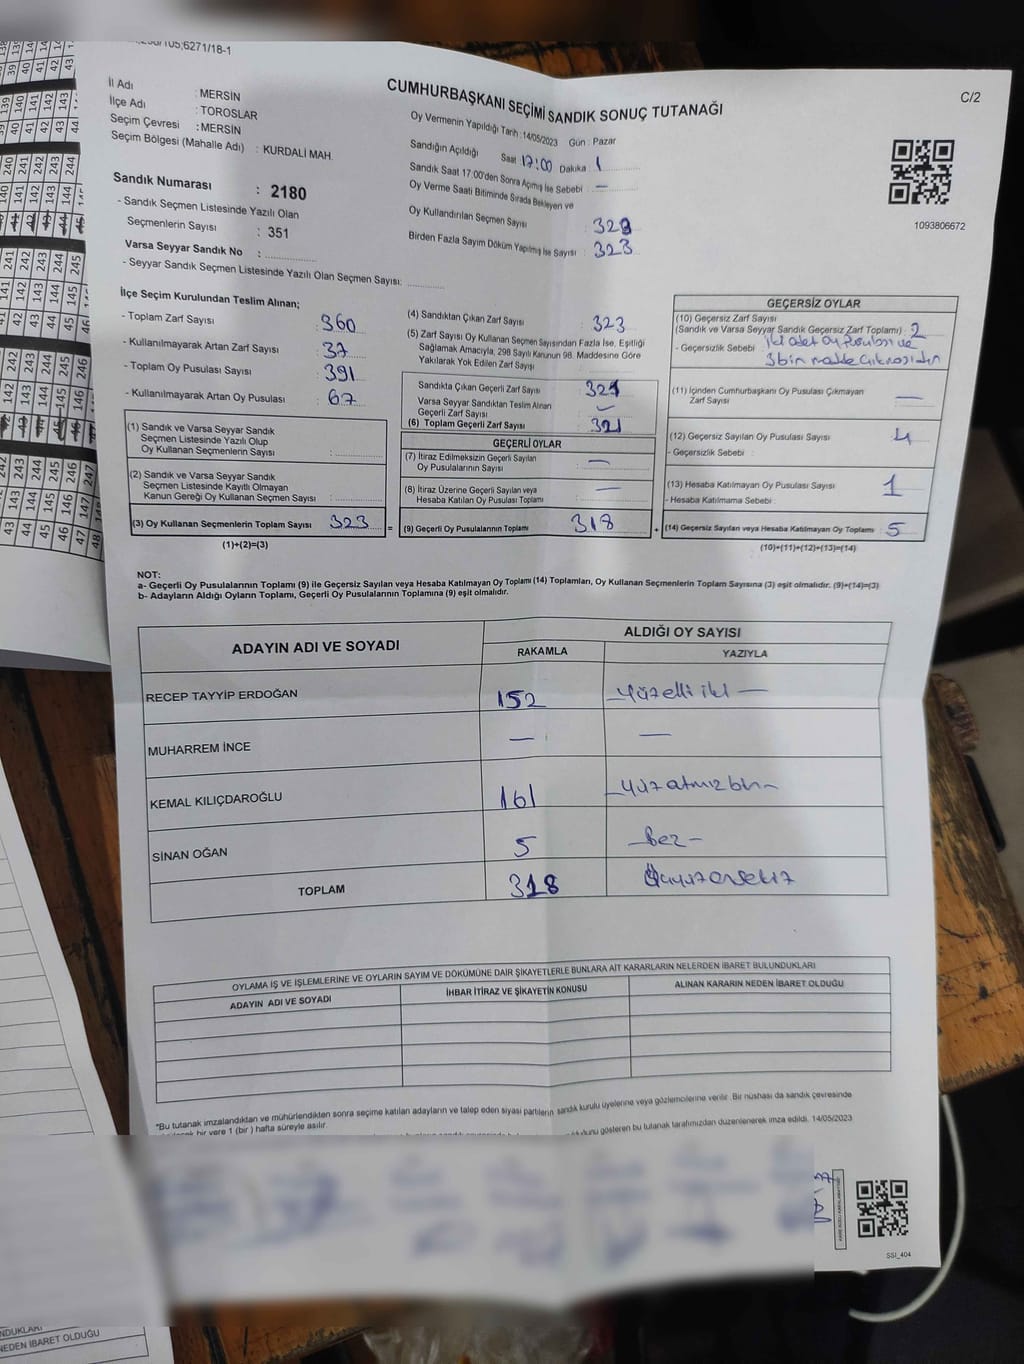 6271/18-1
C/2
CUMHURBAŞKANI SEÇİMİ SANDIK SONUÇ TUTANAĞI
İl Adı : MERSİN
İlçe Adı : TOROSLAR
Seçim Çevresi : MERSİN
Seçim Bölgesi (Mahalle Adı) : KURDALİ MAH.
Sandık Numarası : 2180
- Sandık Seçmen Listesinde Yazılı Olan
Seçmenlerin Sayısı : 351
Varsa Seyyar Sandık No :
- Seyyar Sandık Seçmen Listesinde Yazılı Olan Seçmen Sayısı:
Oy Vermenin Yapıldığı Tarih : 14/05/2023 Gün : Pazar
Sandığın Açıldığı Saat 17:00 Dakika 1
Sandık Saat 17:00'den Sonra Açılmış İse Sebebi : —
Oy Verme Saati Bitiminde Sırada Bekleyen ve
Oy Kullandırılan Seçmen Sayısı : 323
Birden Fazla Sayım Döküm Yapılmış İse Sayısı : 323
1093806672
İlçe Seçim Kurulundan Teslim Alınan;
- Toplam Zarf Sayısı : 360
- Kullanılmayarak Artan Zarf Sayısı : 37
- Toplam Oy Pusulası Sayısı : 391
- Kullanılmayarak Artan Oy Pusulası : 67
(1) Sandık ve Varsa Seyyar Sandık
Seçmen Listesinde Yazılı Olup
Oy Kullanan Seçmenlerin Sayısı :
(2) Sandık ve Varsa Seyyar Sandık
Seçmen Listesinde Kayıtlı Olmayan
Kanun Gereği Oy Kullanan Seçmen Sayısı :
(3) Oy Kullanan Seçmenlerin Toplam Sayısı : 323 =
(1)+(2)=(3)
(4) Sandıktan Çıkan Zarf Sayısı : 323
(5) Zarf Sayısı Oy Kullanan Seçmen Sayısından Fazla İse, Eşitliği
Sağlamak Amacıyla, 298 Sayılı Kanunun 98. Maddesine Göre
Yakılarak Yok Edilen Zarf Sayısı :
Sandıkta Çıkan Geçerli Zarf Sayısı : 321
Varsa Seyyar Sandıktan Teslim Alınan
Geçerli Zarf Sayısı :
(6) Toplam Geçerli Zarf Sayısı : 321
GEÇERLİ OYLAR
(7) İtiraz Edilmeksizin Geçerli Sayılan
Oy Pusulalarının Sayısı : —
(8) İtiraz Üzerine Geçerli Sayılan veya
Hesaba Katılan Oy Pusulası Toplamı : —
(9) Geçerli Oy Pusulalarının Toplamı : 318 +
GEÇERSİZ OYLAR
(10) Geçersiz Zarf Sayısı
(Sandık ve Varsa Seyyar Sandık Geçersiz Zarf Toplamı) : 2
- Geçersizlik Sebebi : iki adet oy pusulası ve
(11) İçinden Cumhurbaşkanı Oy Pusulası Çıkmayan
Zarf Sayısı : —
(12) Geçersiz Sayılan Oy Pusulası Sayısı : 4
- Geçersizlik Sebebi :
(13) Hesaba Katılmayan Oy Pusulası Sayısı : 1
- Hesaba Katılmama Sebebi :
(14) Geçersiz Sayılan veya Hesaba Katılmayan Oy Toplamı : 5
(10)+(11)+(12)+(13)=(14)
NOT:
a- Geçerli Oy Pusulalarının Toplamı (9) ile Geçersiz Sayılan veya Hesaba Katılmayan Oy Toplamı (14) Toplamları, Oy Kullanan Seçmenlerin Toplam Sayısına (3) eşit olmalıdır. (9)+(14)=(3)
b- Adayların Aldığı Oyların Toplamı, Geçerli Oy Pusulalarının Toplamına (9) eşit olmalıdır.
ADAYIN ADI VE SOYADI ALDIĞI OY SAYISI
RAKAMLA YAZIYLA
RECEP TAYYİP ERDOĞAN 152 Yüzelli iki —
MUHARREM İNCE — —
KEMAL KILIÇDAROĞLU 161 Yüzatmışbir
SİNAN OĞAN 5 Beş
TOPLAM 318 Üçyüzonsekiz
OYLAMA İŞ VE İŞLEMLERİNE VE OYLARIN SAYIM VE DÖKÜMÜNE DAİR ŞİKAYETLERLE BUNLARA AİT KARARLARIN NELERDEN İBARET BULUNDUKLARI
ADAYIN ADI VE SOYADI İHBAR İTİRAZ VE ŞİKAYETİN KONUSU ALINAN KARARIN NEDEN İBARET OLDUĞU
*Bu tutanak imzalandıktan ve mühürlendikten sonra seçime katılan adayların ve talep eden siyasi partilerin sandık kurulu üyelerine veya gözlemcilerine verilir. Bir nüshası da sandık çevresinde
bir yere 1 (bir) hafta süreyle asılır.
gösteren bu tutanak tarafımızdan düzenlenerek imza edildi. 14/05/2023
SSİ_404
NEDEN İBARET OLDUĞU